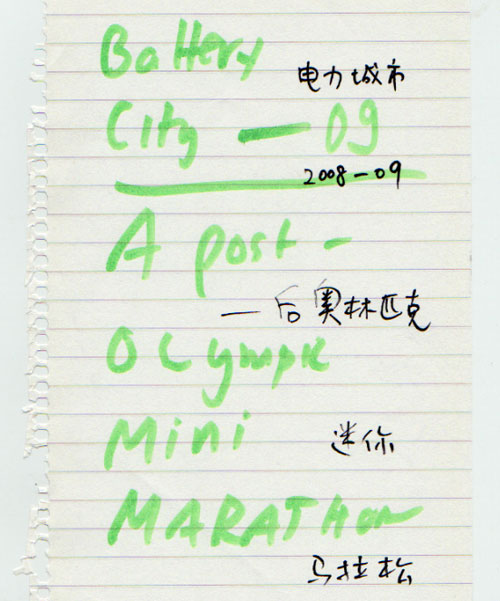 Battery
电力城市
City — 09
2008-09
A post -
— 后奥林匹克
OLYmpic
Mini 迷你
MARATHon
马拉松